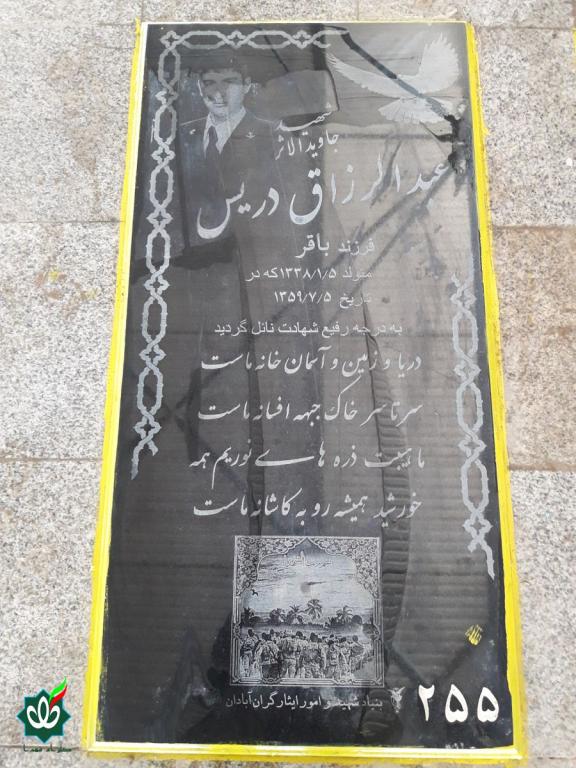 شهید
جاوید الاثر
عبدالرزاق دریس
فرزند باقر
متولد ۱۳۳۸/۱/۵ که در
تاریخ ۱۳۵۹/۷/۵
به درجه رفیع شهادت نائل گردید
دریا و زمین و آسمان خانه ماست
سرتاسر خاک جبهه افسانه ماست
ما هیئت ذره های نوریم همه
خورشید همیشه رو به کاشانه ماست
بنیاد شهید و امور ایثارگران آبادان
۲۵۵